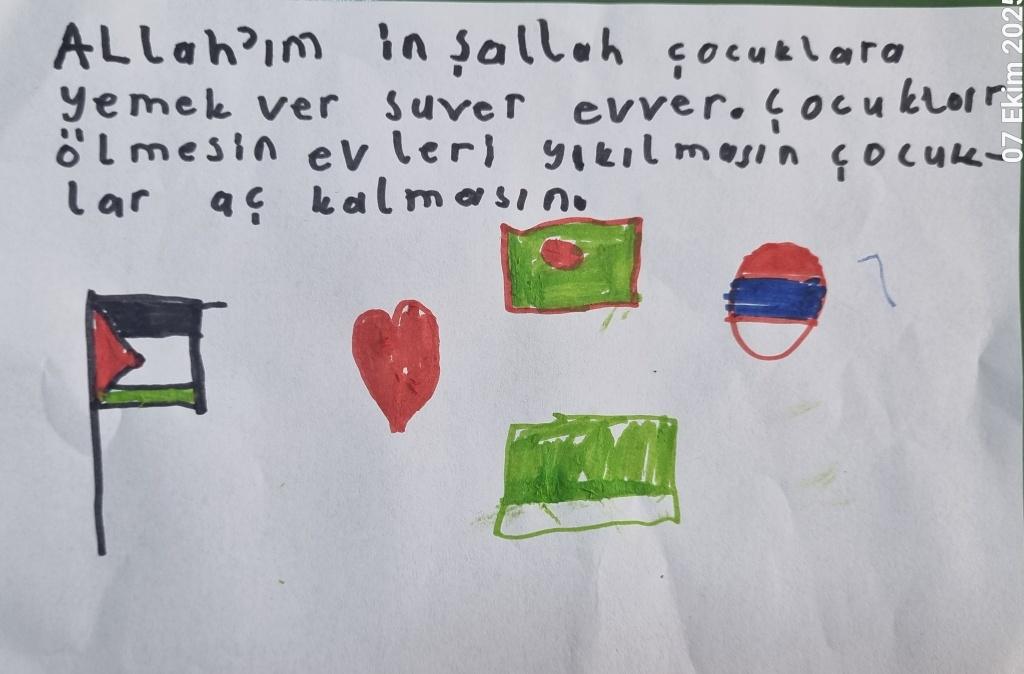 ALLah'ım inşallah çocuklara
yemek ver suver evver. çocuklar
ölmesin evleri yıkılmasın çocuk-
lar aç kalmasın.
07 Ekim 2025